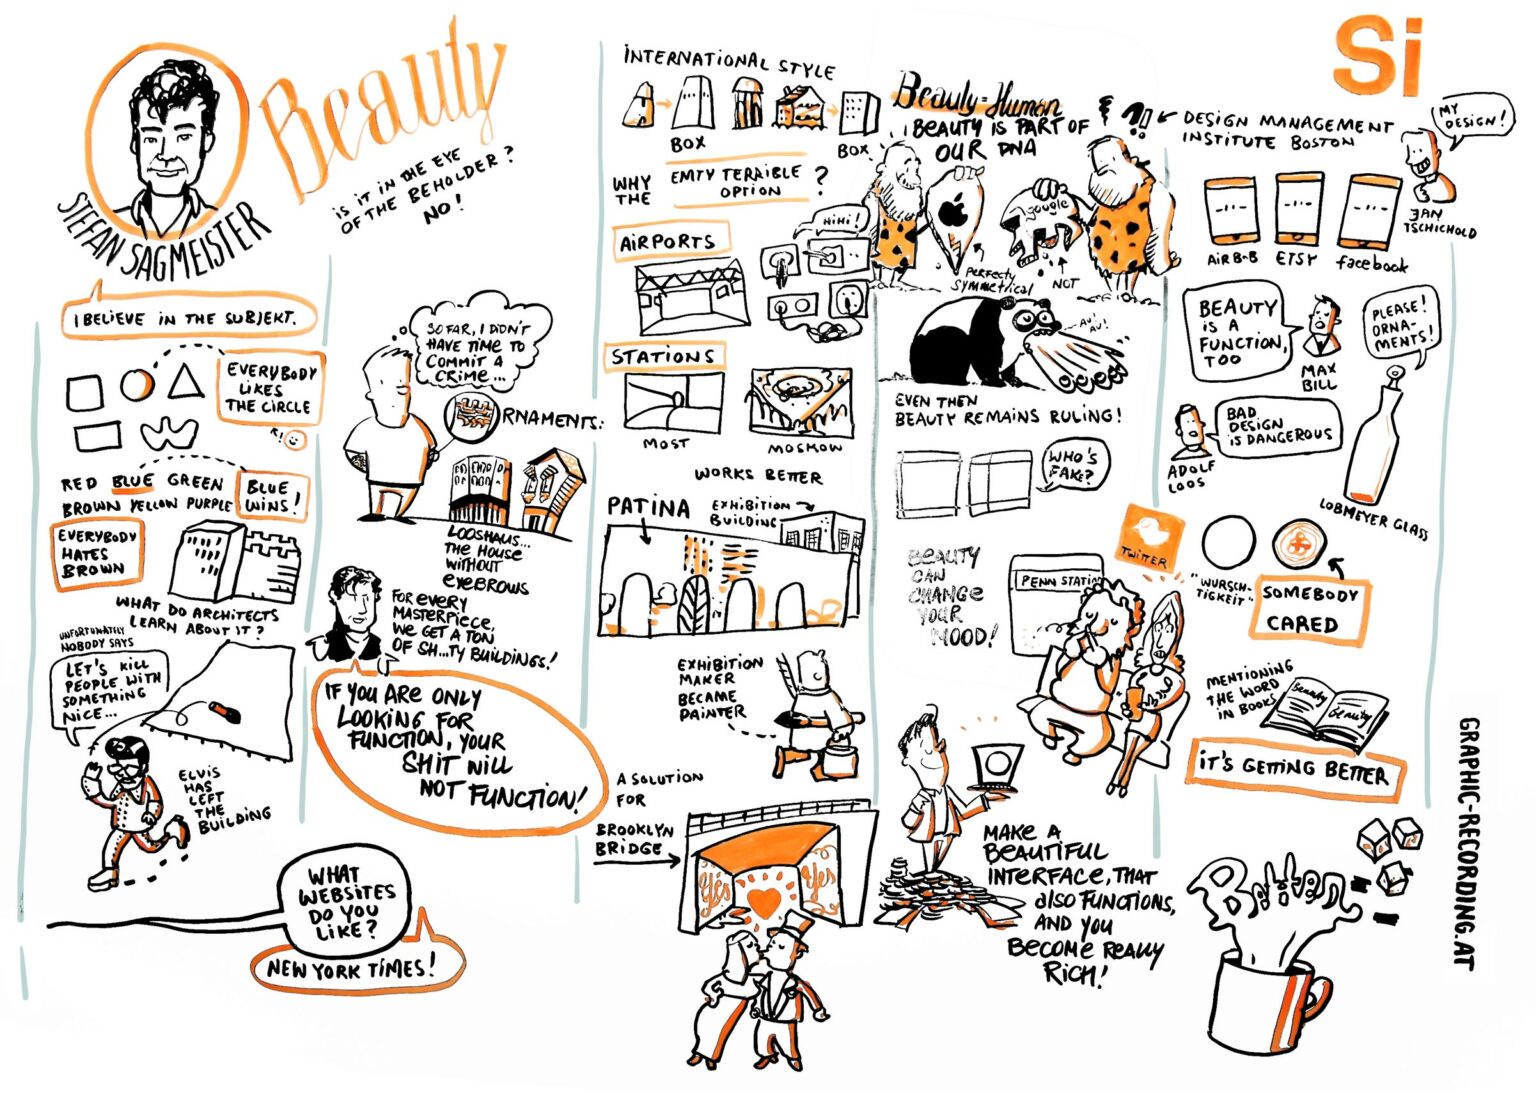 Beauty
IS IT IN THE EYE
OF THE BEHOLDER?
NO!
STEFAN SAGMEISTER
I BELIEVE IN THE SUBJEKT.
EVERYBODY
LIKES
THE CIRCLE
RED BLUE GREEN
BROWN YELLOW PURPLE
BLUE
WINS!
EVERYBODY
HATES
BROWN
WHAT DO ARCHITECTS
LEARN ABOUT IT?
UNFORTUNATELY
NOBODY SAYS
LET'S KILL
PEOPLE WITH
SOMETHING
NICE...
ELVIS
HAS
LEFT
THE
BUILDING
WHAT
WEBSITES
DO YOU
LIKE?
NEW YORK TIMES!
SO FAR, I DIDN'T
HAVE TIME TO
COMMIT A
CRIME...
RNAMENTS:
LOOSHAUS...
THE HOUSE
WITHOUT
EYEBROWS
FOR EVERY
MASTERPIECE,
WE GET A TON
OF SH...TY BUILDINGS!
IF YOU ARE ONLY
LOOKING FOR
FUNCTION, YOUR
SHIT WILL
NOT FUNCTION!
INTERNATIONAL STYLE
BOX
BOX
WHY
THE
EMTY TERRIBLE
OPTION
?
HIHI!
AIRPORTS
STATIONS
MOST
MOSKOW
WORKS BETTER
PATINA
EXHIBITION
BUILDING
EXHIBITION
MAKER
BECAME
PAINTER
A SOLUTION
FOR
BROOKLYN
BRIDGE
Yes
Yes
Beauty = Human
BEAUTY IS PART OF
OUR DNA
?!
google
PERFECTY
SYMMETRICAL
NOT
AU!
AU!
EVEN THEN
BEAUTY REMAINS RULING!
WHO'S
FAKE?
BEAUTY
CAN
CHANGE
YOUR
MOOD!
PENN STATION
TWITTER
MAKE A
BEAUTIFUL
INTERFACE, THAT
also FUNCTIONS,
AND YOU
BECOME REALLY
RICH!
Si
DESIGN MANAGEMENT
INSTITUTE BOSTON
MY
DESIGN!
JAN
TSCHICHOLD
AIRB-B
ETSY
facebook
BEAUTY
IS A
FUNCTION,
TOO
MAX
BILL
PLEASE!
ORNA-
MENTS!
BAD
DESIGN
IS DANGEROUS
ADOLF
LOOS
LOBMEYER GLASS
"WURSCH-
TIGKEIT"
SOMEBODY
CARED
MENTIONING
THE WORD
IN BOOKS
Beauty
Beauty
IT'S GETTING BETTER
Better
GRAPHIC-RECORDING.AT